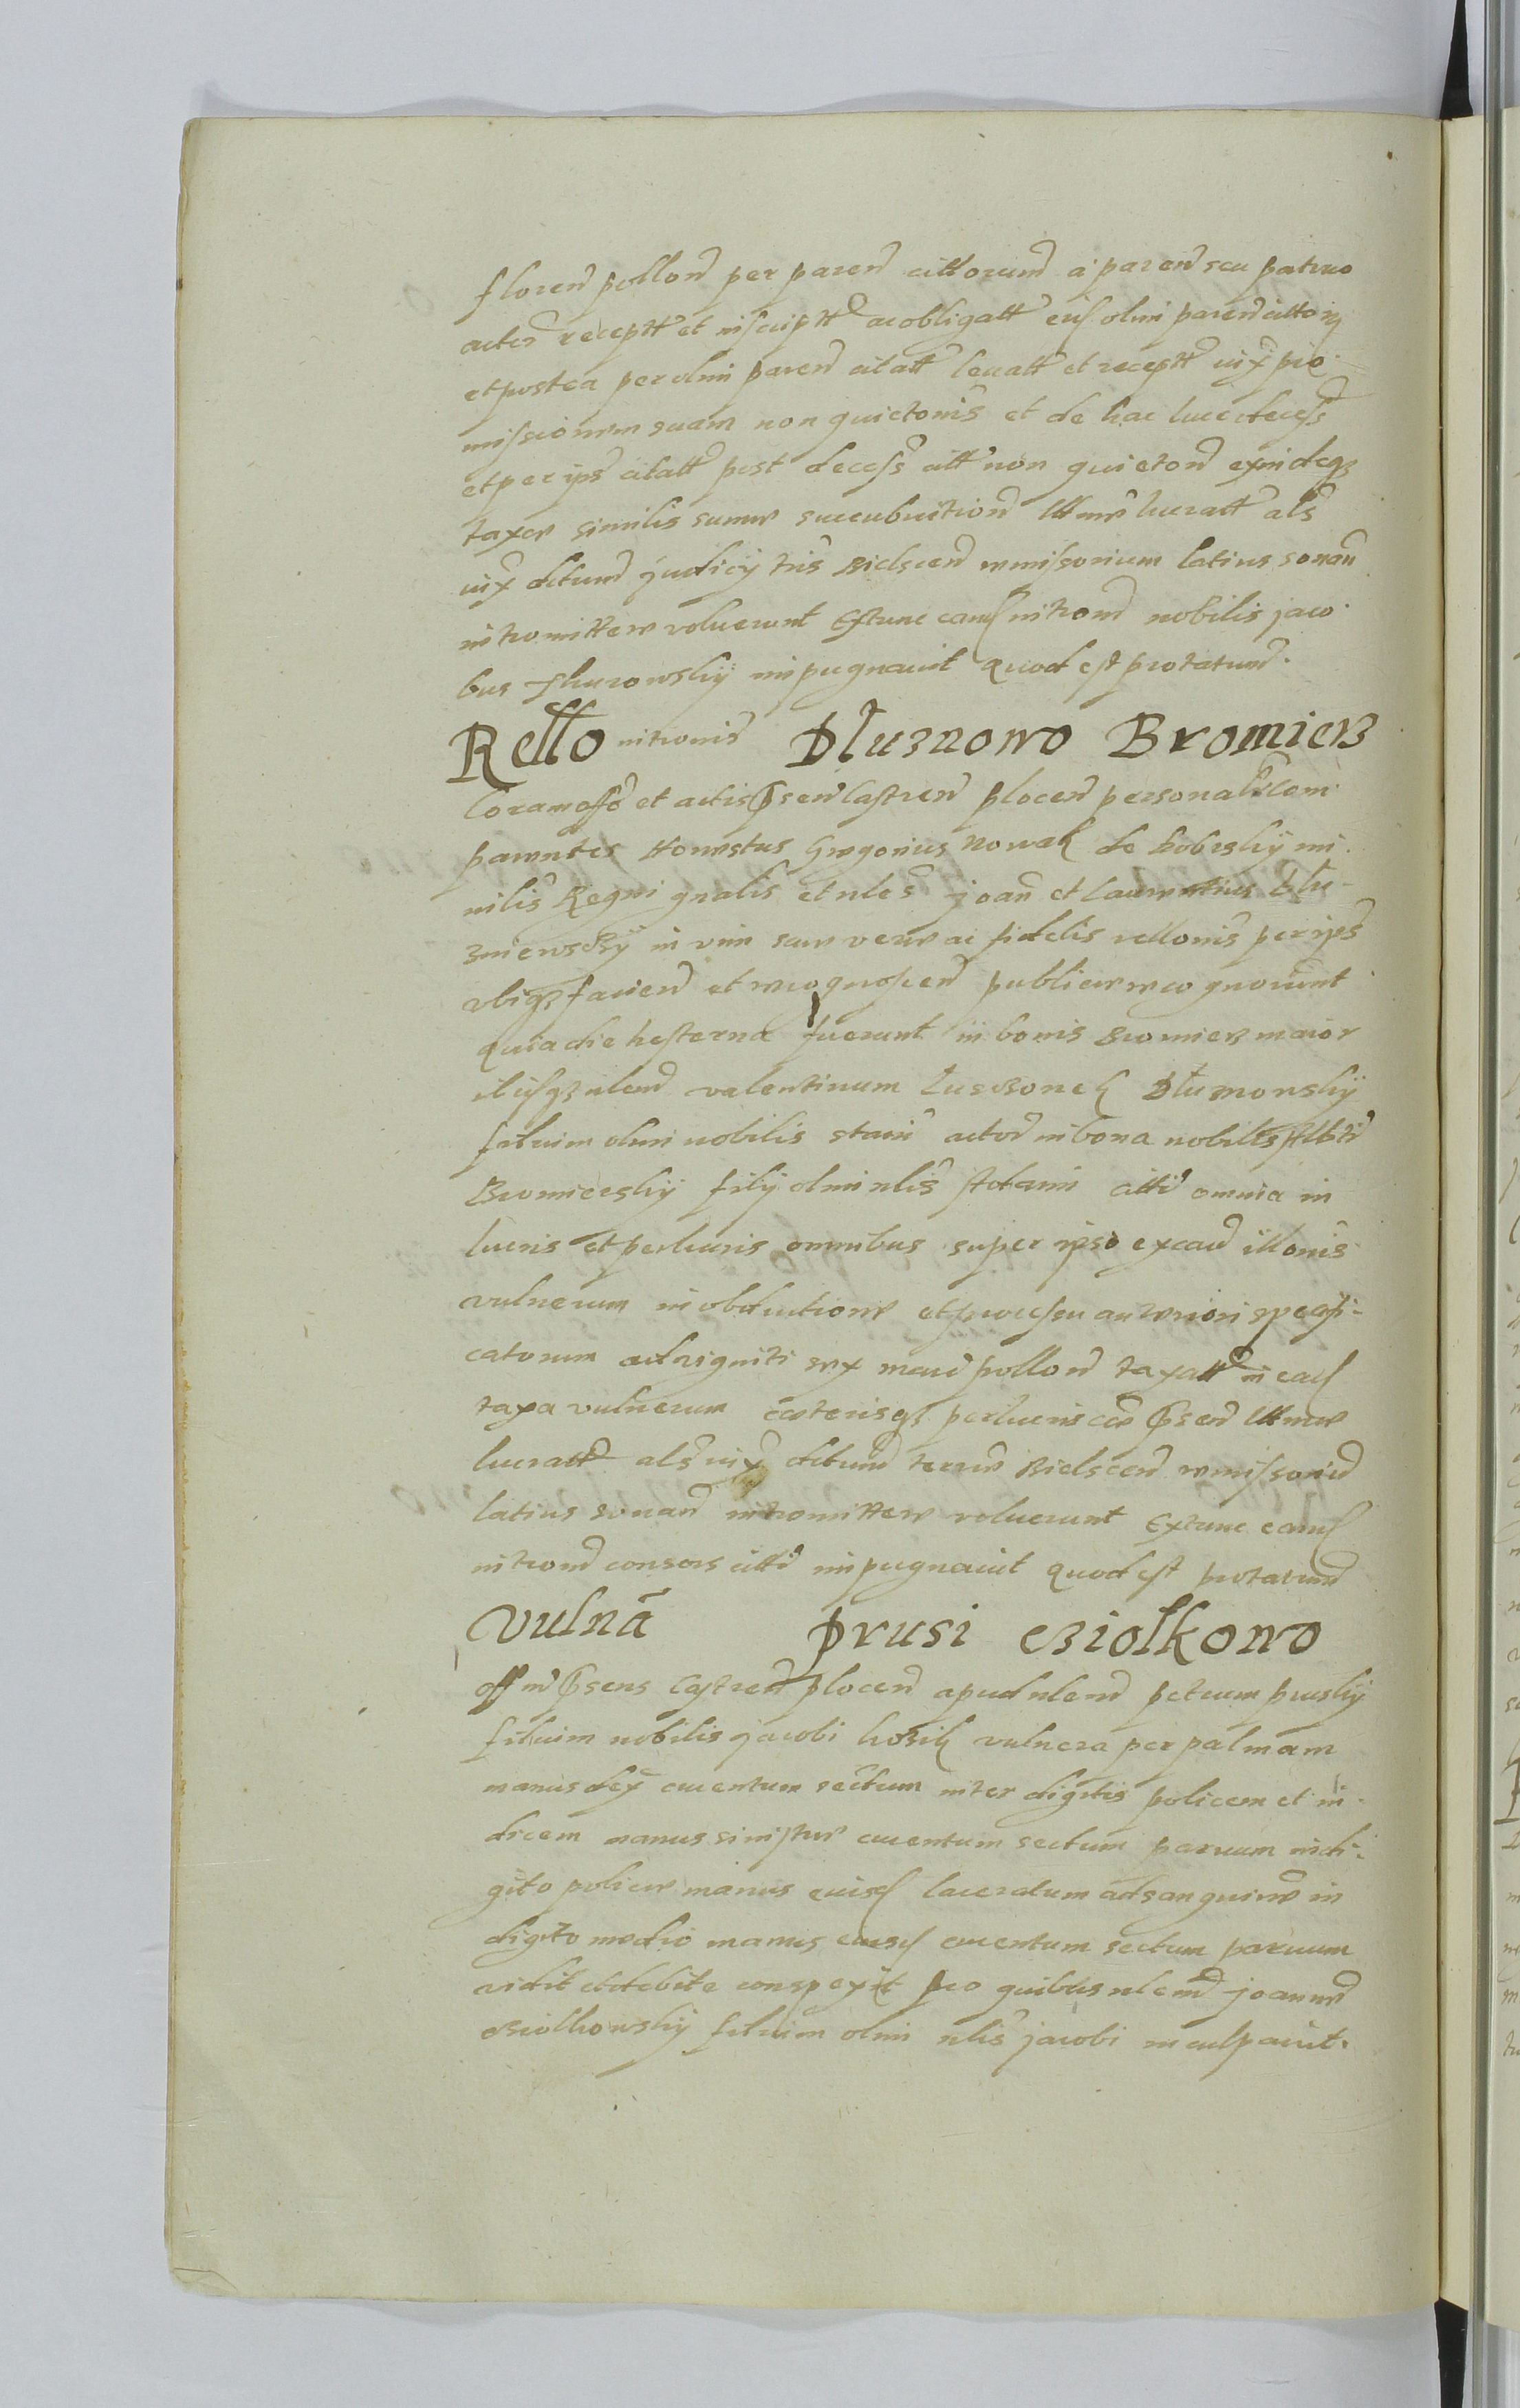 floren pollon per paren cittorum a paren seu patruo
actor receptt et inscriptt ac obligatt eius olim paren cittorum
et postea per olim paren citatt leuatt et receptt iux pro
missionem suam non quietonis et de hac luce decess
et per ips citatt post decess citt non quieton exindeqz
taxae similis summe succubuition ltime lucratt als
iux ditum judicy tris Bielscen remissorium latius sonan
intromittere voluerunt Extunc eand intron nobilis jaco
bus Zhurowsky impugnauit quod est protatum.
Rello intronis Dłuznowo Bromierz
Coram offo et actis psen Castren plocen personalr com
parentes Honestus Gregorius Nowak de Bobrsky mi
nilis Regni gnalis et nles Joan et Laurentius Dłu
zniewsky in vim suae verae ac fidelis rellonis per ips
vbiqz facien et recognoscen publice recognouerunt
quia die hesterna fuerunt in bonis Bromierz maior
ibiqz nlem valentinum Dłuznowsky
filium olim nobilis stani actor in bona nobilis Alb
Bromiersky fily olim nlis Adami citti omnia in
lucris et perlucris omnibus super ipso ex ca illonis
vulnerum in obductione et processu anteriori specifi
catorum ad viginti sex marc pollon taxatt in ead
taxa vulnerum caeterisqz perlucris psen ltime
lucratt als iux ditum terrae Bielscen remissoriu
latius sonan intromittere voluerunt Extunc eand
intron consors citti impugnauit quod est protatum
Vulna Prusi Cziołkowo
offm psens Castren plocen apud nlem petrum prusky
filium nobilis jacobi kozik vulnera per palmam
manus dex cruentum sectum inter digitis policem et in
dicem manus sinistrae cruentum sectum paruum in di
gito police manus eiusd laceratum ad sanguine in
digito medio manus eiusd cruentum sectum paruum
vidit et debite conspexit pro quibus nlem joanne
Cziolkowsky filium olim nlis jacobi inculpauit.